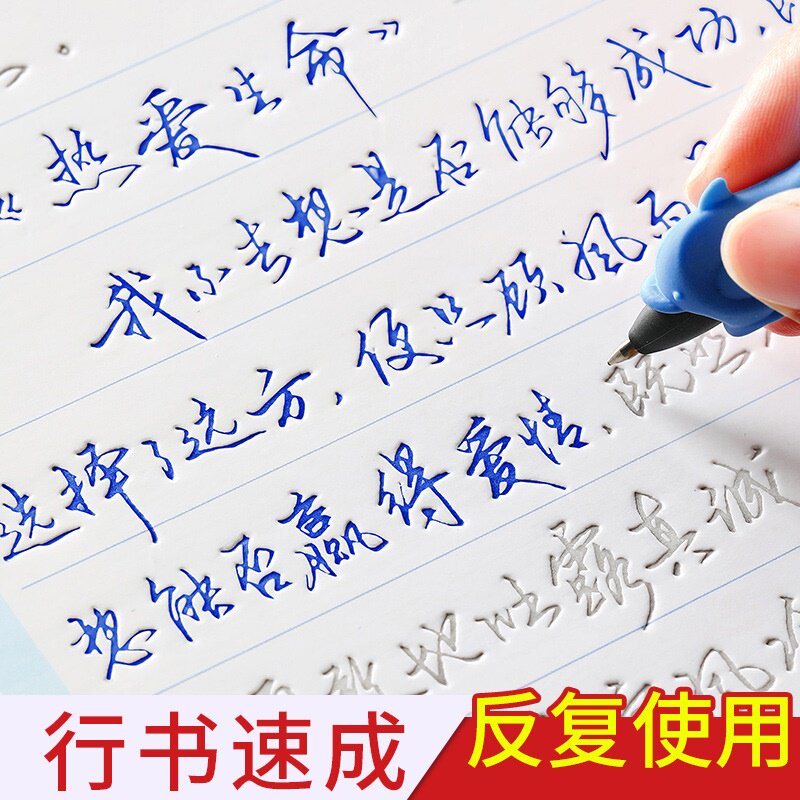 《热爱生命》
我不去想是否能够成功，
选择了远方，便只顾風雨
想能否赢得爱情，既
地吐露真诚
风
行书速成
反复使用